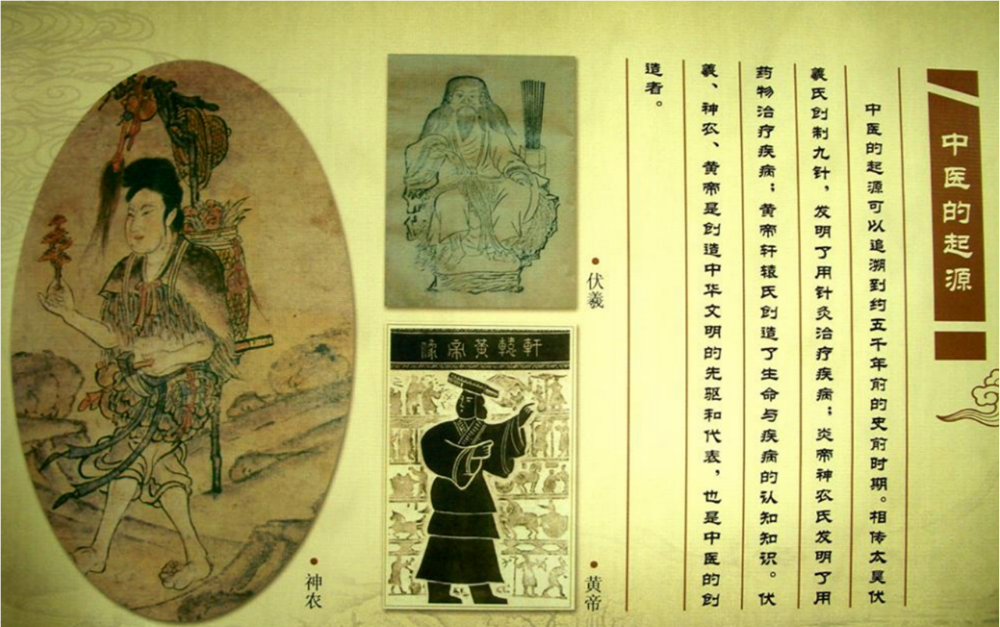 中医的起源
中医的起源可以追溯到约五千年前的史前时期。相传太昊伏
羲氏创制九针，发明了用针灸治疗疾病；炎帝神农氏发明了用
药物治疗疾病；黄帝轩辕氏创造了生命与疾病的认知知识。伏
羲、神农、黄帝是创造中华文明的先驱和代表，也是中医的创
造者。
伏羲
軒轅黄帝像
黄帝
神农